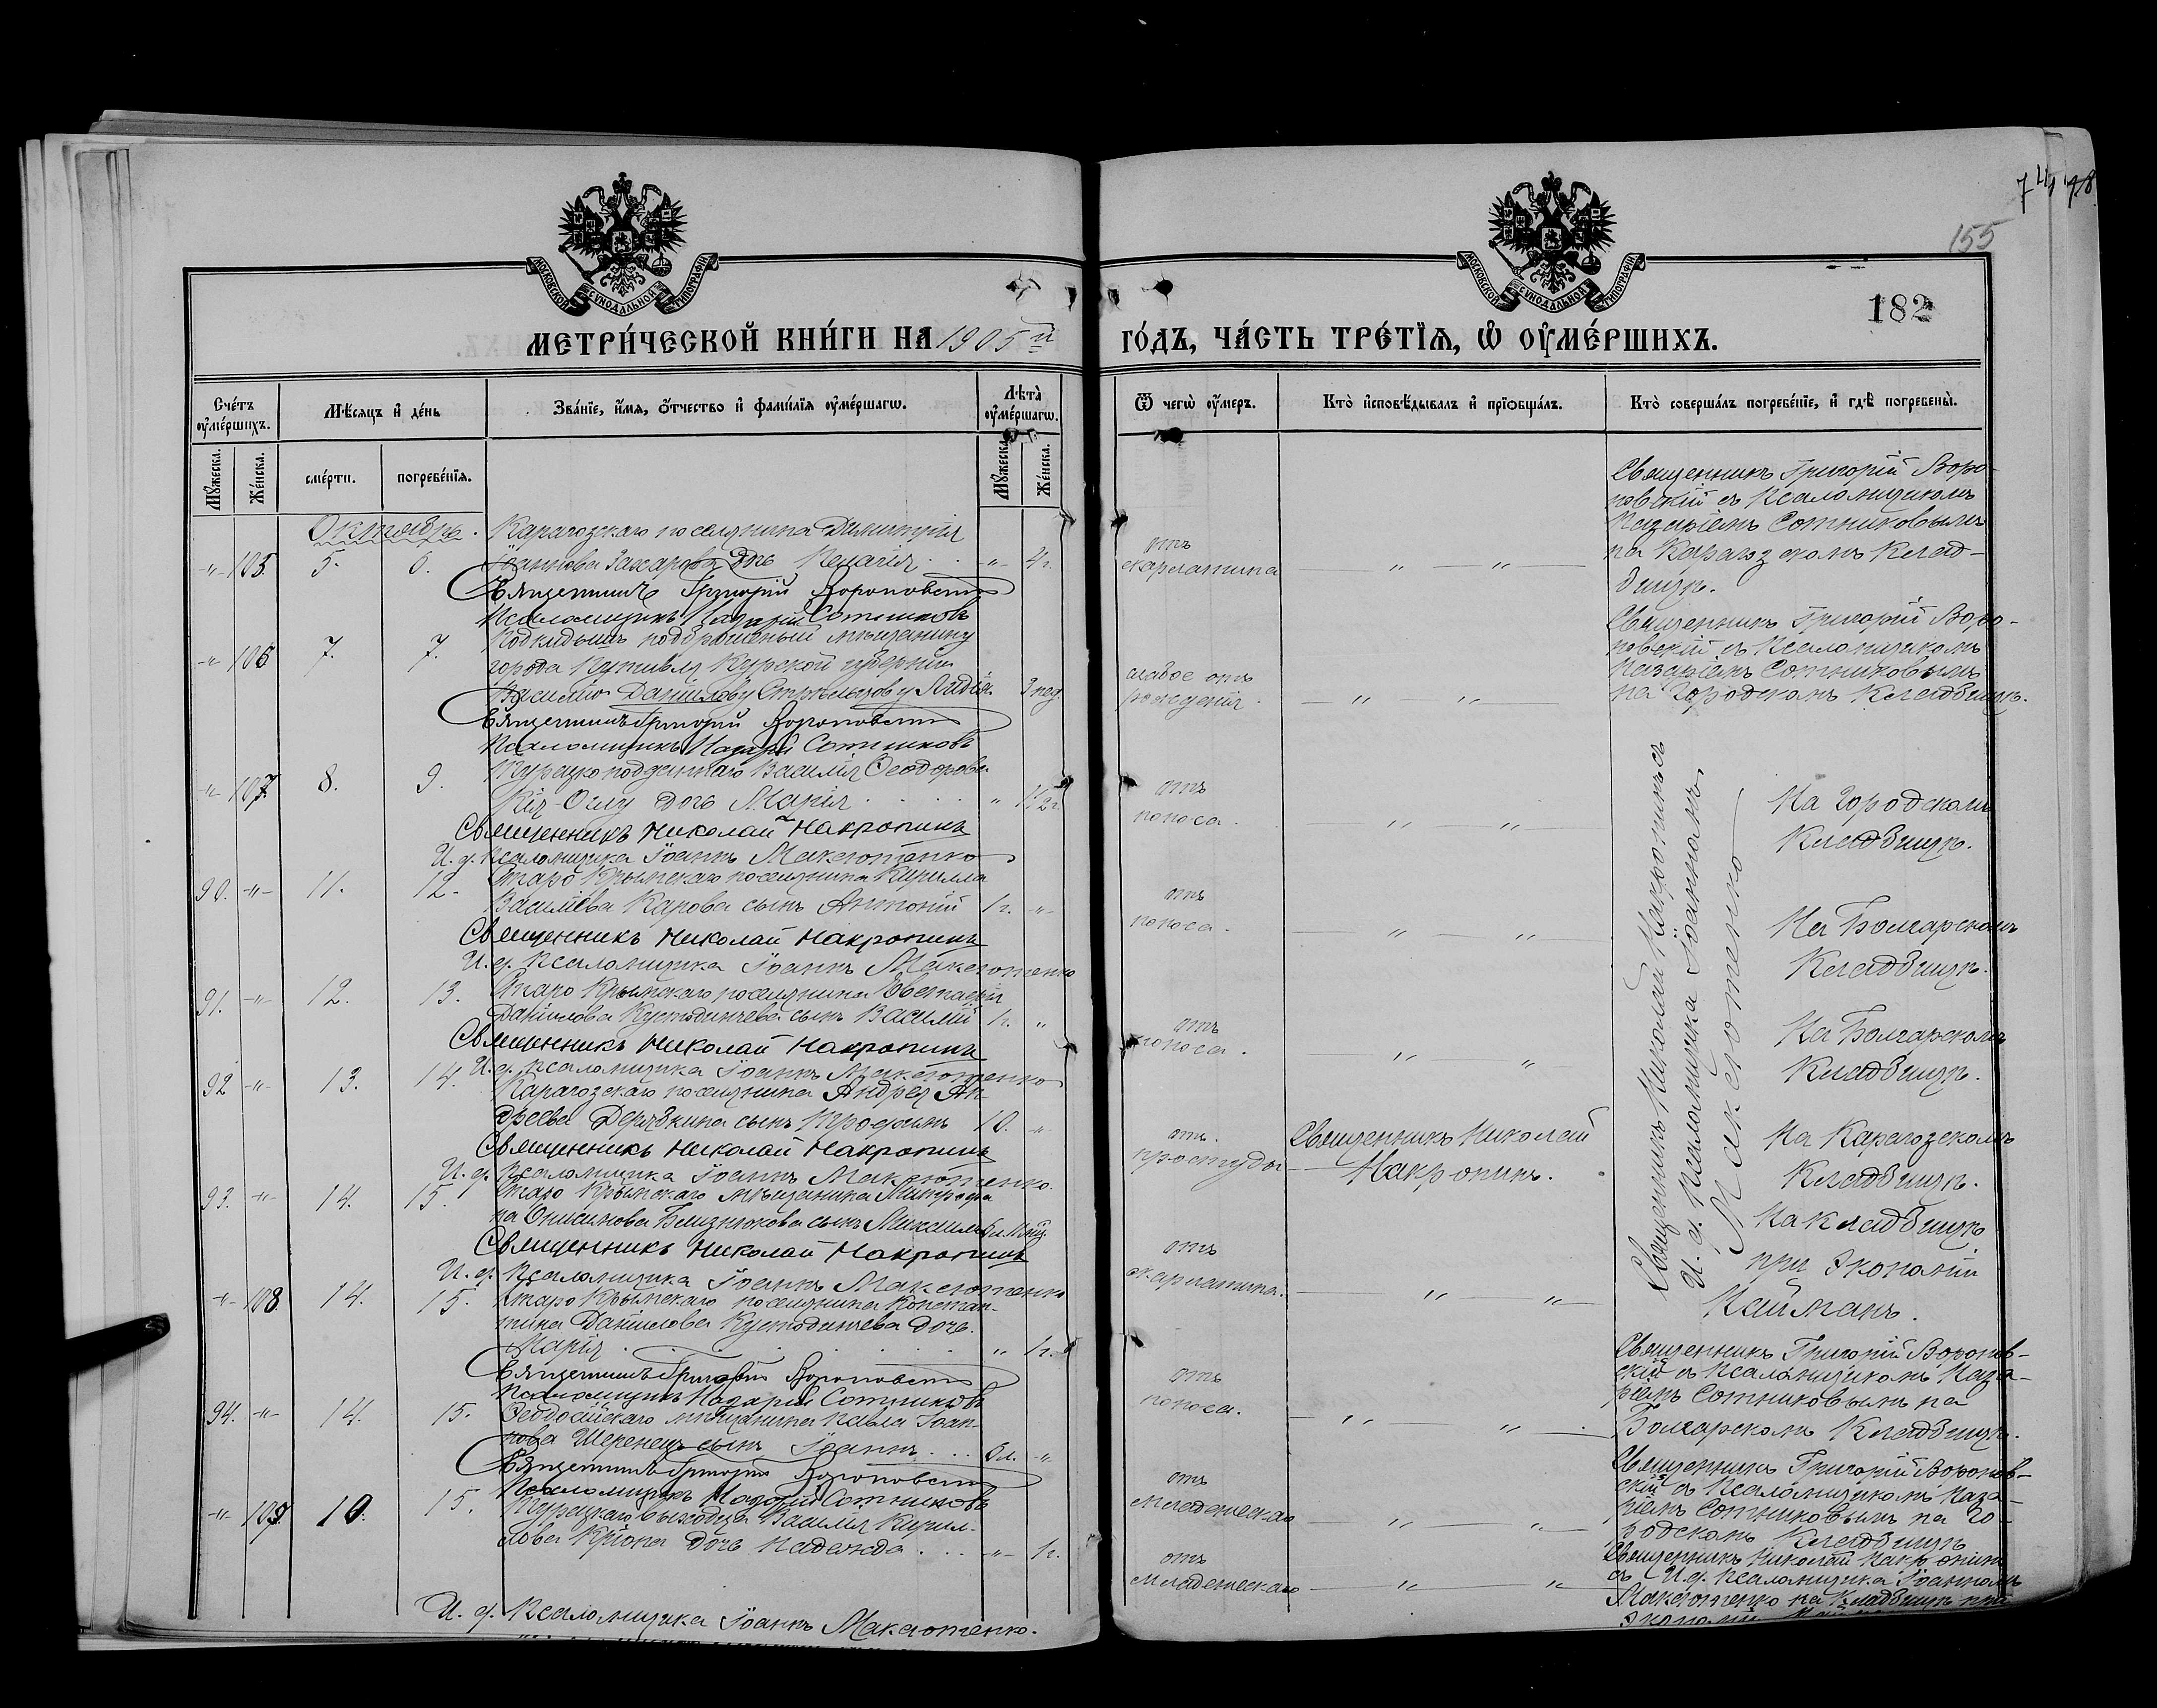 74 78
155
182
МОСКОВСКОЙ СѴНОДАЛЬНОЙ ТИПОГРАФІИ
МОСКОВСКОЙ СѴНОДАЛЬНОЙ ТИПОГРАФІИ
МЕТРИ́ЧЕСКОЙ КНИ́ГИ НА 1905й
ГО́ДЪ, ЧА́СТЬ ТРЕ́ТІѦ, Ѡ҆ ОУ҆МЕ́РШИХЪ.
Сче́тъ оу҆ме́ршихъ.
Мѣ́сяцъ и҆ де́нь
Зва́нїе, и҆́мѧ, ѻ҆́тчество и҆ фами́лїѧ оу҆ме́ршагѡ.
Лѣта̀ оу҆ме́ршагѡ.
Мꙋ́жеска.
Же́нска.
сме́рти.
погребе́нїѧ.
Мꙋ́жеска.
Же́нска.
Ѿ чегѡ̀ оу҆́меръ.
Кто̀ и҆сповѣ́дывалъ и҆ прїѻбща́лъ.
Кто̀ соверша́лъ погребе́нїе, и҆ гдѣ̀ погребены̀.
Октябрь.
Карагозскаго поселянина Димитрія
-"- 105. 5. 6. Іоаннова Захарова дочь -"- 4 г.
Священникъ Григорій Вороновскій
Псаломщикъ Назарій Сотниковъ
отъ
скарлатина — " — " —
Священникъ Григорій Воро-
новскій съ Псаломщикомъ
Назаріемъ Сотниковымъ
на Карагозскомъ Клад-
бищѣ.
-"- 106 7. 7. Подкидышъ подброшеный мѣщанину
города Путивля Курской губерніи
Василію Данилову Стрѣльцову Лидія. 3 нед.
Священникъ Григорій Вороновскій
Псаломщикъ Назарій Сотниковъ
слабое отъ
рожденія. — " — " —
Священникъ Григорій Воро-
новскій съ Псаломщикомъ
Назаріемъ Сотниковымъ
на Городскомъ Кладбищѣ.
-"- 107. 8. 9. Турецкоподданнаго Василія Ѳеодорова
дочь Марія "
Священникъ Николай Накропинъ
И. д. Псаломщика Іоаннъ Максютенко
отъ
поноса. — " " —
На Городскомъ
Кладбищѣ.
90. -"- 11. 12. Старо Крымскаго поселянина Кирилла
Васильева Карова сынъ Антоній 1 г. -"-
Священникъ Николай Накропинъ
И. д. Псаломщика Іоаннъ Максютенко
отъ
поноса. — " — " —
На Болгарскомъ
Кладбищѣ.
91. -"- 12. 13. Старо Крымскаго поселянина Евстафія
Данилова Кустодинчева сынъ Василій 1 г. "
Священникъ Николай Накропинъ
И. д. Псаломщика Іоаннъ Максютенко
отъ
поноса. " "
На Болгарскомъ
Кладбищѣ.
92 -"- 13. 14. Карагозскаго поселянина Андрея Ан-
дреева сынъ Трофимъ 10. -"-
Священникъ Николай Накропинъ
И. д. Псаломщика Іоаннъ Максютенко.
отъ
простуды
Священникъ Николай
Накропинъ.
На Карагозскомъ
Кладбищѣ.
93. -"- 14. 15. Старо Крымскаго мѣщанина Митрофа-
на Онисимова Близнюкова сынъ Михаилъ
Священникъ Николай Накропинъ
И. д. Псаломщика Іоаннъ Максютенко
отъ
скарлатина. — " — " —
На кладбищѣ
при Экономіи
Кейманъ.
Священникъ Николай Накропинъ съ
И. д. Псаломщика Іоанномъ
Максютенко
-"- 108 14. 15. Старо Крымскаго поселянина Констан-
тина Данилова Кустодинчева дочь
Марія " 1 г.
Священникъ Григорій Вороновскій
Псаломщикъ Назарій Сотниковъ
отъ
поноса. — " " —
Священникъ Григорій Воронов-
скій съ Псаломщикомъ Наза-
ріемъ Сотниковымъ на
Болгарскомъ Кладбищѣ.
94. -"- 14. 15. Ѳеодосійскаго мѣщанина Павла Іоан-
нова Шеренецъ сынъ Іоаннъ -"-
Священникъ Григорій Вороновскій
Псаломщикъ Назарій Сотниковъ
отъ
младенческаго — " — " —
Священникъ Григорій Воронов-
скій съ Псаломщикомъ Наза-
ріемъ Сотниковымъ на Го-
родскомъ Кладбищѣ
-"- 109. 10. 15. Турецкаго выходца Василія Кирил-
лова дочь Надежда -"- 1 г.
И. д. Псаломщика Іоаннъ Максютенко.
отъ
младенческаго — " — " —
Священникъ Николай Накропинъ
съ И. д. Псаломщика Іоанномъ
Максютенко на Кладбищѣ при